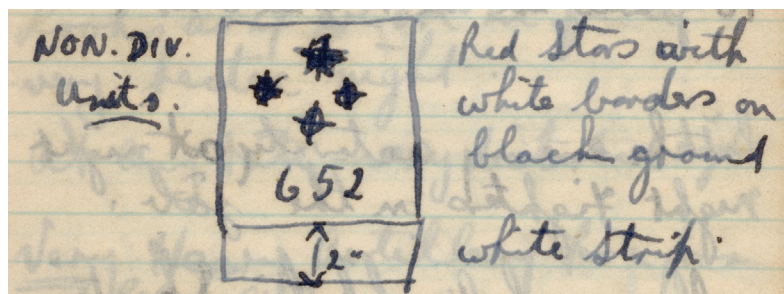 NON. DIV.
Units.
Red Stars with
white borders on
black ground
652
2"
white strip.